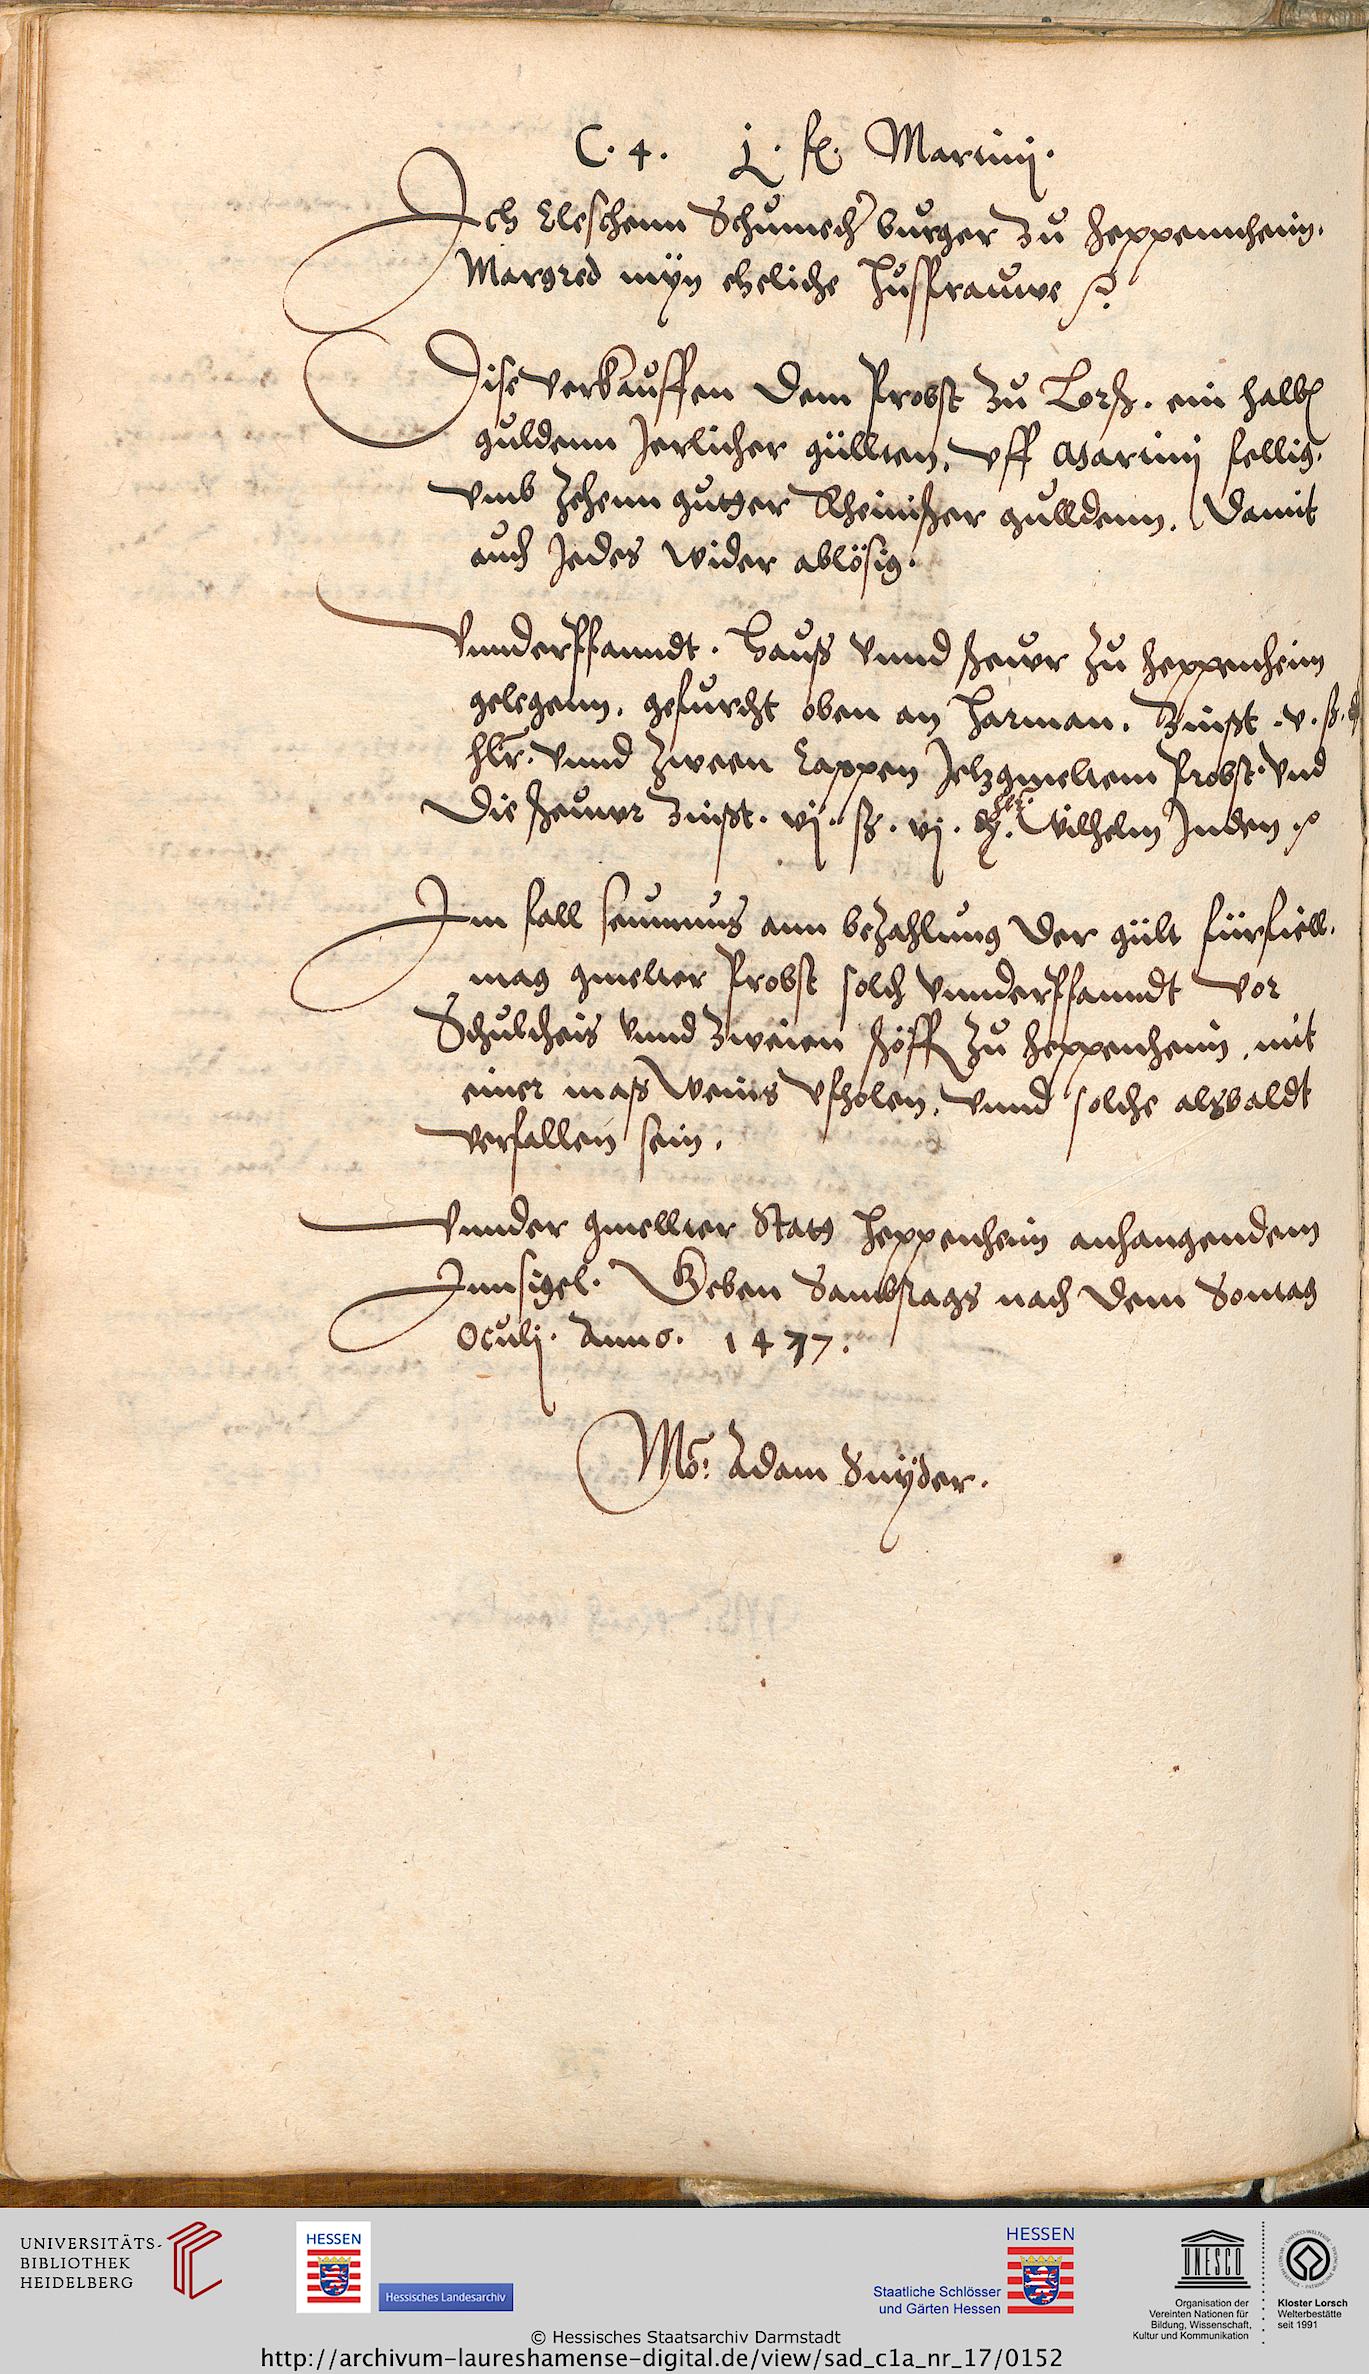 C. 4. Martinj.
Ich Cleschenn Schumecher burger zu Heppennheim.
Margred myn eheliche Hussfrauwe
Dise verkauffen dem Probst zu Lorß. ein halb
guldenn Jerlicher güllten, vff Martinj fellig.
vmb zehenn gutter Rheinißer gulldenn. Damit
auch Jedes wider ablösig.
Vnnderpfanndt. Hauß vnnd scheuwr zu Heppenheim
gelegenn. gefurcht oben an Harman. Zinßt .v. ß.
hlr. vnnd zween Cappen Jetzgmeltem Probst. vnd
die scheuwr Zinßt. vj. ß. vj. hlr. Wilhelm Juden
Im fall seumnus ann bezahlung der gült fürfiell.
mag gmelter Probst solch vnnderpfanndt vor
Schultheis vnnd zweien schöff zu Heppenheim, mit
einer maß weins vfholen, vnnd solche alsbaldt
verfallen sein.
Vnnder gmellter Statt Heppenheim anhangendem
Innsigel. Geben Sambstags nach dem Sontag
Oculj. Anno. 1477.
Mo: Adam Snyder.
UNIVERSITÄTS-
BIBLIOTHEK
HEIDELBERG
HESSEN
Hessisches Landesarchiv
HESSEN
Staatliche Schlösser
und Gärten Hessen
UNESCO
Organisation der
Vereinten Nationen für
Bildung, Wissenschaft,
Kultur und Kommunikation
Kloster Lorsch
Welterbestätte
seit 1991
© Hessisches Staatsarchiv Darmstadt
http://archivum-laureshamense-digital.de/view/sad_c1a_nr_17/0152